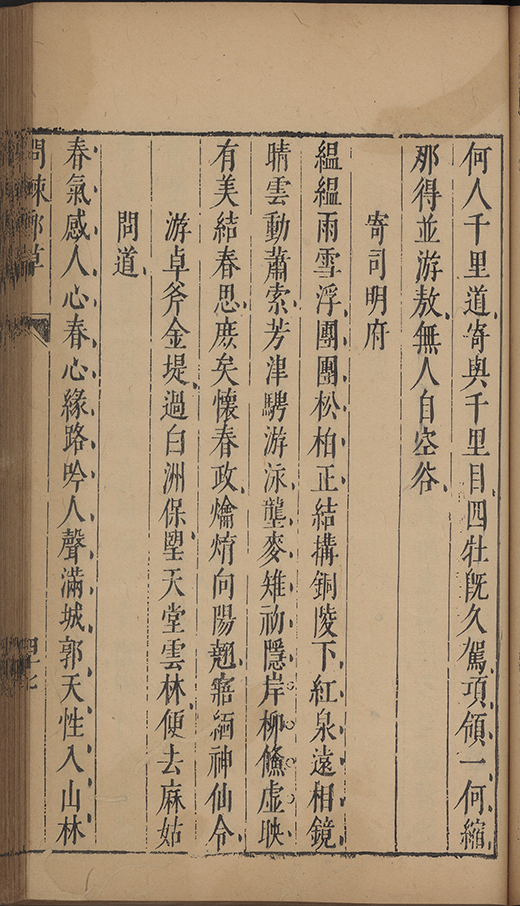 何人千里道寄與千里目四牡旣久駕項領一何縮
那得並游敖無人自空谷
寄司明府
緼緼雨雪浮團團松柏正結搆銅陵下紅泉遠相鏡
晴雲動蕭索芳津騁游泳壟麥雉初隱岸柳鯈虛映
有美結春思庶矣懷春政爚焴向陽翹寤緬神仙令
游卓斧金堤過白洲保望天堂雲林便去麻姑
問道
春氣感人心春心緣路吟人聲滿城郭天性入山林
問棘郵草
四七